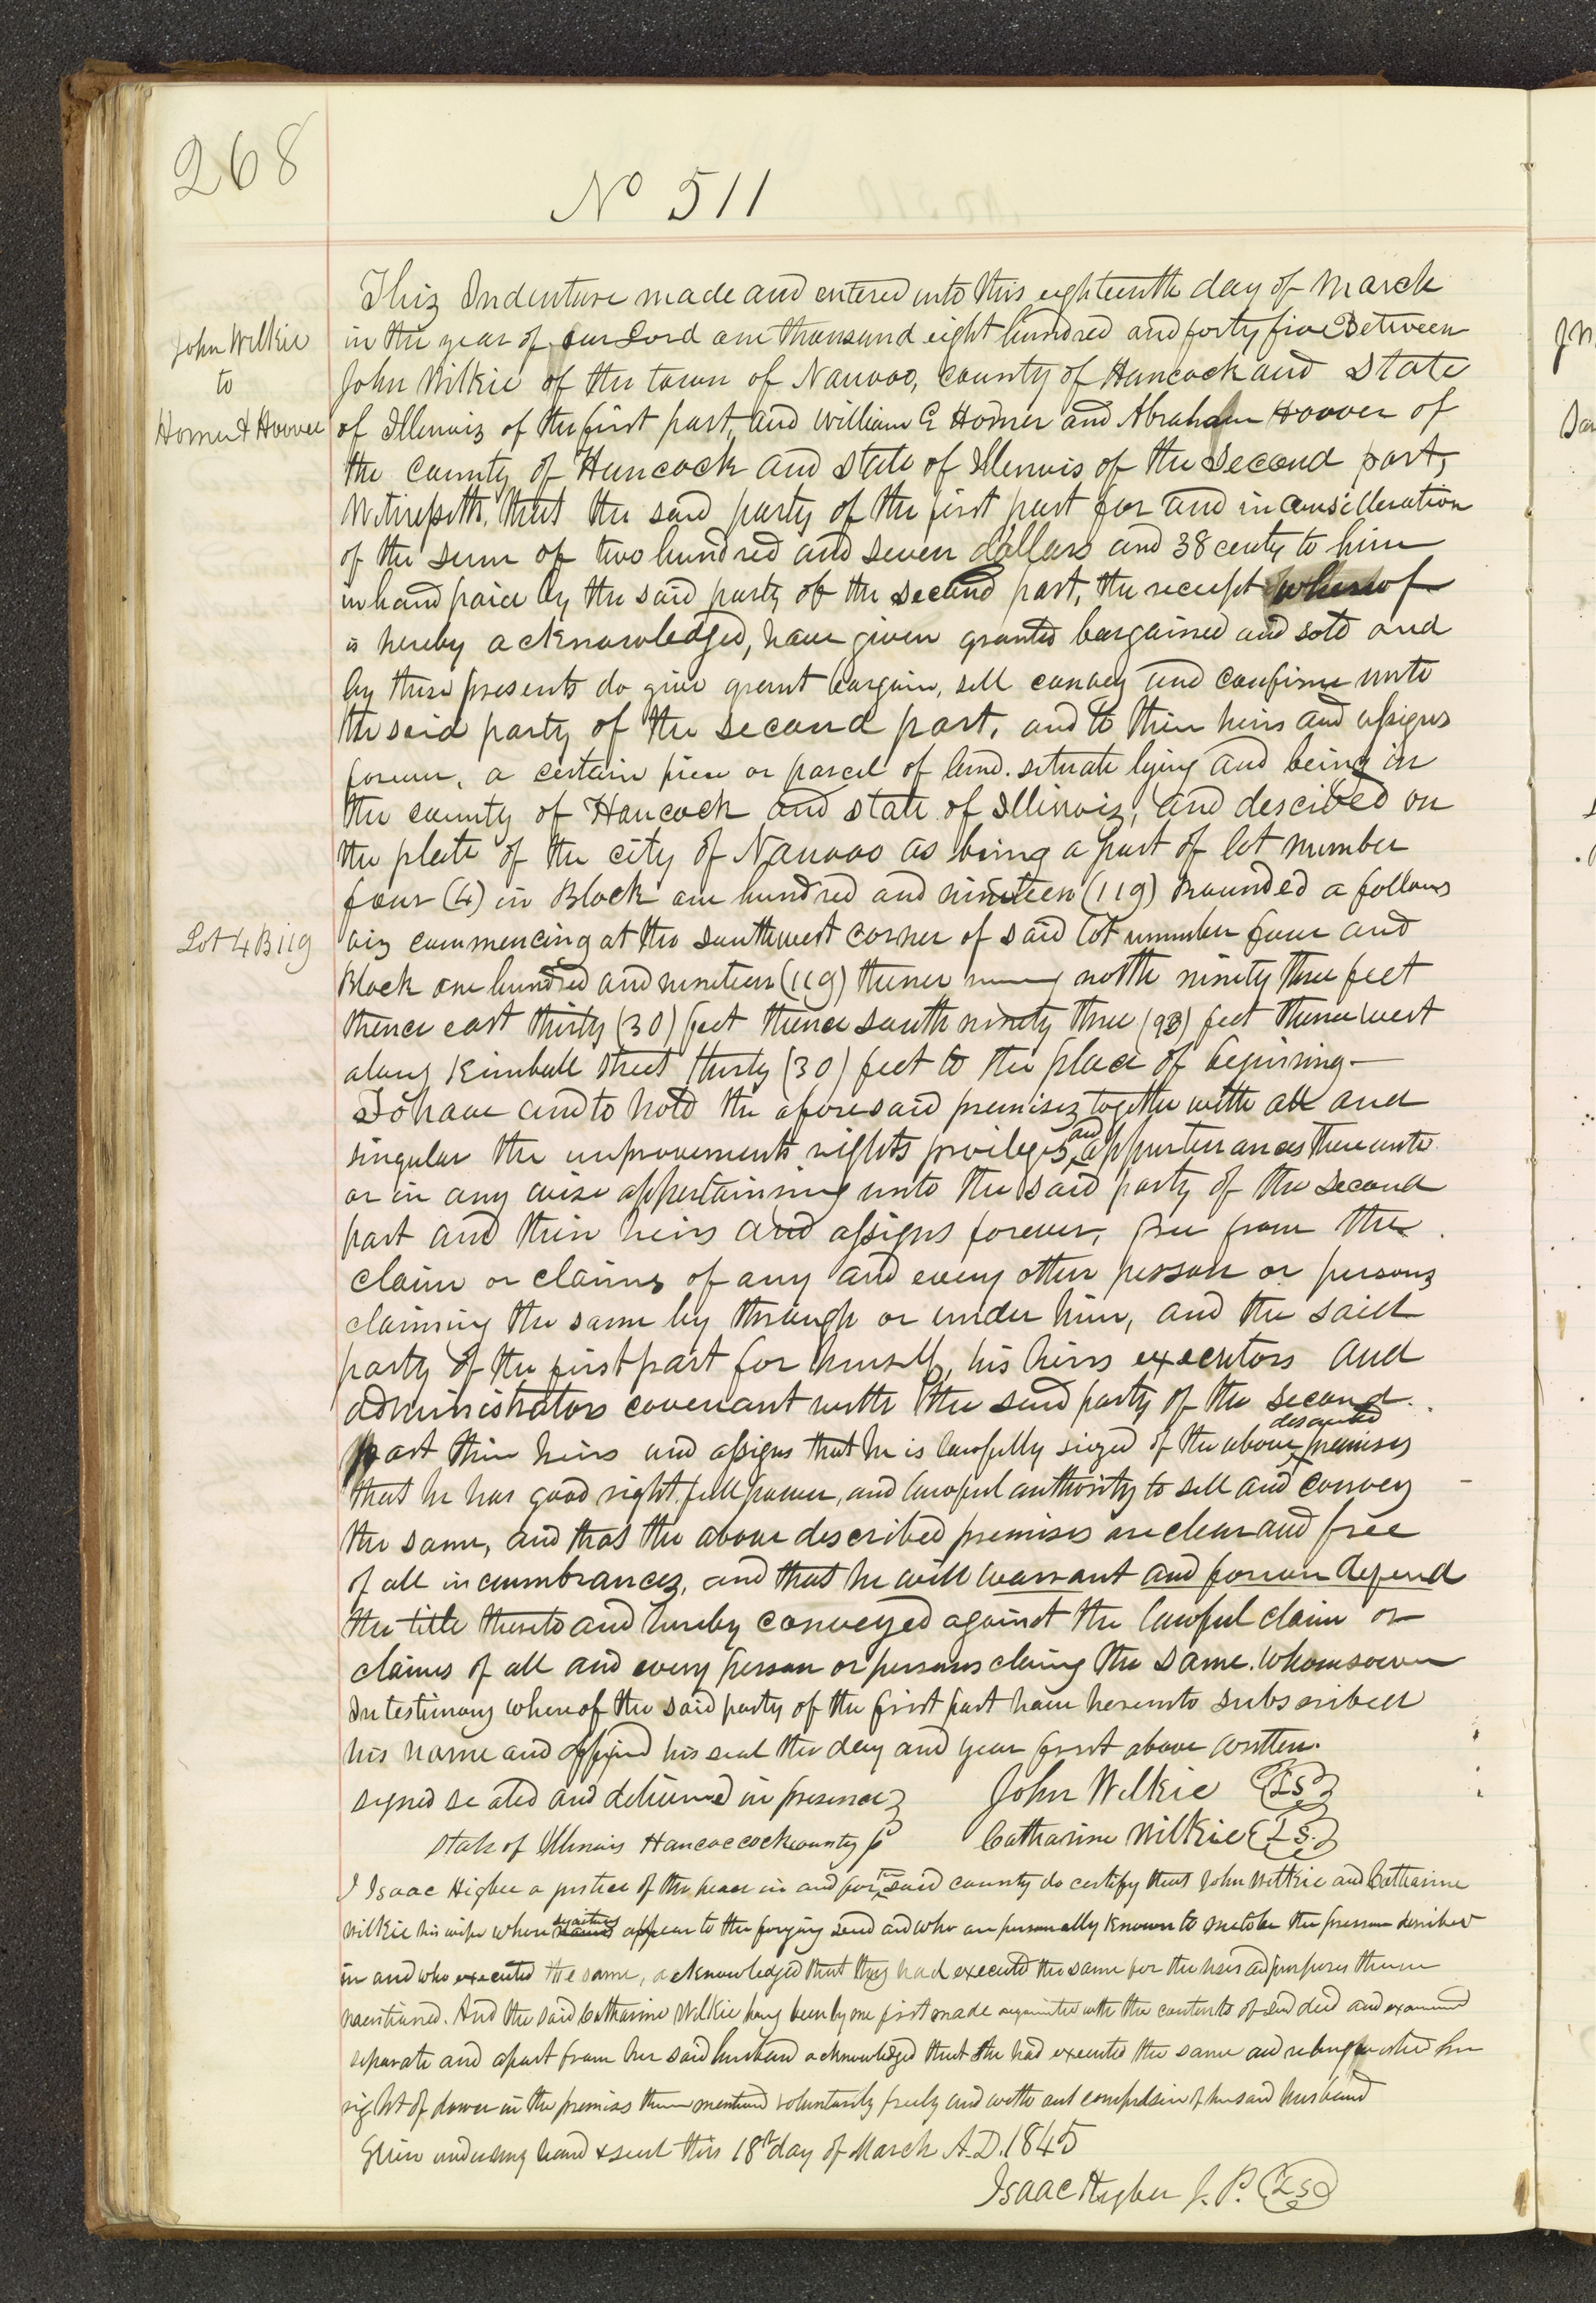 268
No 511
This Indenture made and entered into this eighteenth day of March
in the year of our Lord one thousand eight hundred and forty five Between
John Wilkie
to
Horner & Hoover
John Wilkie of the town of Nauvoo, county of Hancock and State
of Illinois of the first part, and William E Horner and Abraham Hoover of
the county of Hancock and state of Illinois of the second part,
Witnesseth, that the said party of the first part for and in consideration
of the sum of two hundred and seven dollars and 38 cents to him
in hand paid by the said party of the second part, the receipt whereof
is hereby acknowledged, have given granted bargained and sold and
by these presents do give grant bargain, sell convey and confirm unto
the said party of the second part, and to their heirs and assigns
forever, a certain piece or parcel of land. situate lying and being in
the county of Hancock and state of Illinois, and descibed on
the plate of the city of Nauvoo as being a part of lot number
four (4) in Block one hundred and nineteen (119) Bounded a follows
Lot 4 B 119
viz commencing at the southwest corner of said lot number four and
Block one hundred and nineteen (119) thence north ninety three feet
thence east thirty (30) feet thence south ninety three (93) feet thence west
along Kimball street thirty (30) feet to the place of beginning-
To have and to hold the aforesaid premises together with all and
singular the improvements rights privileges and appurtenances thereunto
or in any wise appertaining unto the said party of the second
part and their heirs and assigns forever, free from the
claim or claims of any and every other person or persons
claiming the same by through or under him, and the said
party of the first part for himself, his heirs executors and
administrators covenant with the said party of the second
part their heirs and assigns that he is lawfully siezed of the above described premises
that he has good right, full power, and lawful authority to sell and convey
the same, and that the above described premises are clear and free
of all incumbrances, and that he will warrant and forever defend
the title thereto and hereby conveyed against the lawful claim or
claims of all and every person or persons claing the same. whomsoever
In testimony whereof the said party of the first part have hereunto subscribed
his name and affixed his seal the day and year first above written.
signed sealed and delivered in presence John Wilkie LS
State of Illinois Hancoccock county Catharine Wilkie L.S.
I Isaac Higbee a justice of the peace in and for the said county do certify that John Wilkie and Catharine
Wilkie his wife whose signatures appear to the forging deed and who are personally known to me to be the person described
in and who executed the same, acknowledged that they had executed the same for the uses and purposes therein
mentioned. And the said Catharine Wilkie having been by me first made acquainted with the contents of said deed and examined
separate and apart from her said husband acknowledged that she had executed the same and relinquished her
right of dower in the premises therein mentioned voluntarily freely and with out compulsion of her said husband
Given under my hand & seal this 18th day of March A.D. 1845
Isaac Higbee J. P. LS